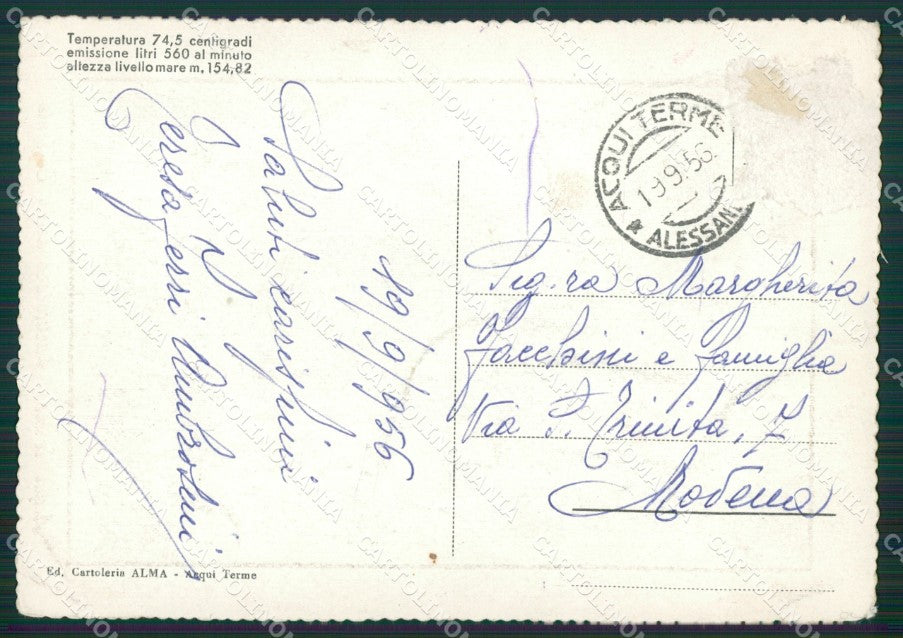 Temperatura 74,5 centigradi
emissione litri 560 al minuto
altezza livello mare m. 154,82
19/9/956
Saluti carissimi
Teresa
ACQUI TERME
19.9.56
* ALESSAN
Sig.ra Margherita
Facchini e famiglia
Via S. Trinita, 7
Modena
Ed. Cartoleria ALMA - Acqui Terme
CARTOLINOMANIA